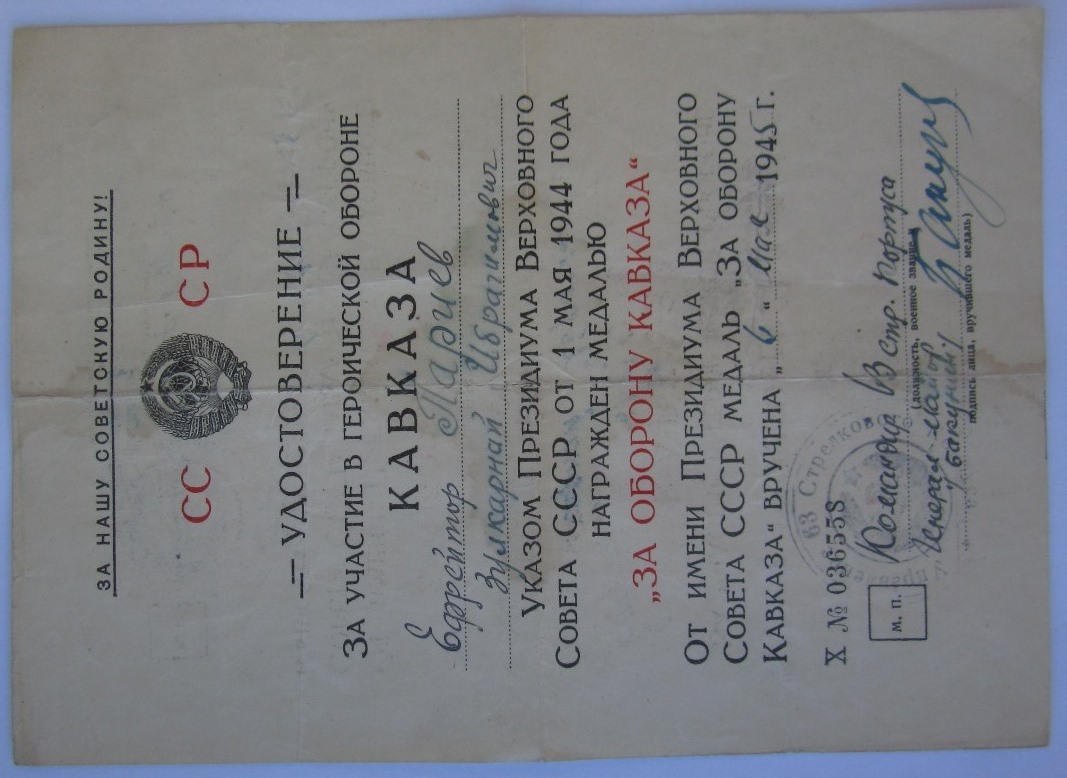 ЗА НАШУ СОВЕТСКУЮ РОДИНУ!
СС СР
УДОСТОВЕРЕНИЕ
ЗА УЧАСТИЕ В ГЕРОИЧЕСКОЙ ОБОРОНЕ
КАВКАЗА
Ефрейтор Париев
Зулкарнай Ибрагимович
УКАЗОМ ПРЕЗИДИУМА ВЕРХОВНОГО
СОВЕТА СССР ОТ 1 МАЯ 1944 ГОДА
НАГРАЖДЕН МЕДАЛЬЮ
„ЗА ОБОРОНУ КАВКАЗА“
ОТ ИМЕНИ ПРЕЗИДИУМА ВЕРХОВНОГО
СОВЕТА СССР МЕДАЛЬ „ЗА ОБОРОНУ
КАВКАЗА“ ВРУЧЕНА „6“ мая 1945 г.
Х № 036558
63 Стрелков
М. П.
Командир стр. корпуса
(должность, военное звание,
Генерал-майор
/Бакунин/
подпись лица, вручившего медаль)